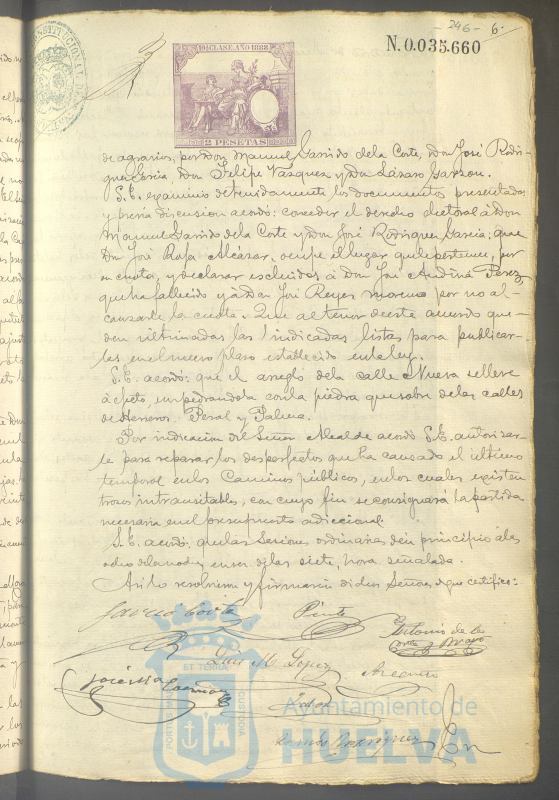 - 246 -
6
N. 0.035.660
10ª CLASE. AÑO 1888
2 PESETAS
de agravios, por Don Manuel Garrido de la Corte, Don José Rodri-
guez Garcia, Don Felipe Vazquez y Don Lázaro Garzon.
S.E. examinó detenidamente los documentos presentados
y previa discusion acordó: conceder el derecho electoral á Don
Manuel Garrido de la Corte y Don José Rodriguez Garcia; que
Don José Rofa Alcázar, ocupe el lugar que le pertenece, por
su cuota, y declarar escluidos á Don José Medina Perez
que ha fallecido y á Don José Reyes Moreno por no al-
canzarle la cuota. Que al tenor de este acuerdo que-
den ultimadas las indicadas listas para publicar-
las en el nuevo plazo establecido en la ley.
S.E. acordó: que el arreglo de la calle Nueva se lleve
á efecto, empedrandola con la piedra que sobre de las calles
de Herreros, Peral y Palma.
Por indicacion del Señor Alcalde acordó S.E. autorizar-
le para reparar los desperfectos que ha causado el último
temporal en los Caminos públicos, en los cuales existen
trozos intransitables, con cuyo fin se consignará la partida
necesaria en el presupuesto adiccional.
S.E. acordó: que las Sesiones ordinarias den principio á las
ocho de la noche y en vez de las siete, hora señalada.
Asi lo resolvieron y firmaron dichos Señores de que certifico:
Garrido
Pinto
Antonio de la
Corte y Bravo
Luis M. Lopez
José Mª
Ramos Rodriguez
PORTUS MARIS
ET TERRAE
CUSTODIA
Ayuntamiento de
HUELVA